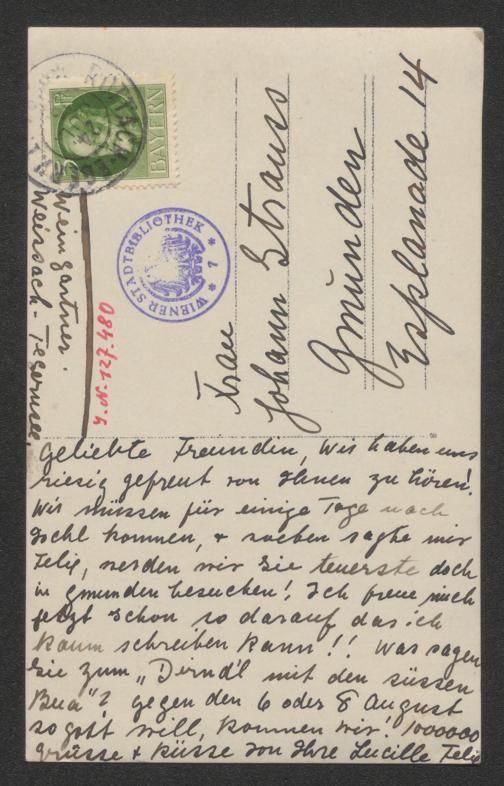 BAYERN
WIENER STADTBIBLIOTHEK
* 7 *
Weingartner.
Weissach-Tegernsee,
J.N. 127.480
Frau
Johann Strauss
Gmunden
Esplanade 14
Geliebte Freundin, Wir haben uns
riesig gefreut von Ihnen zu hören!
Wir müssen für einige Tage nach
Ischl kommen, + soeben sagte mir
Felix, werden wir Sie teuerste doch
in Gmunden besuchen! Ich freue mich
jetzt schon so darauf das ich
kaum schreiben kann!! Was sagen
Sie zum „Dirndl mit den süssen
Bua"? gegen den 6 oder 8 August
so gott will, kommen wir! 1000000
grüsse + küsse von Ihre Lucille Felix